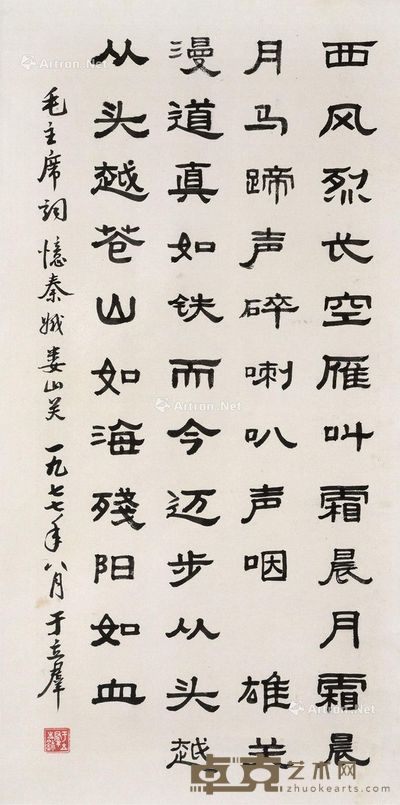 西风烈长空雁叫霜晨月霜晨
月马蹄声碎喇叭声咽 雄关
漫道真如铁而今迈步从头越
从头越苍山如海殘阳如血
毛主席词憶秦娥娄山关一九七七年八月于立羣
Artron.Net
Artron.Net
Artron.Net
卓克艺术网
zhuokearts.com